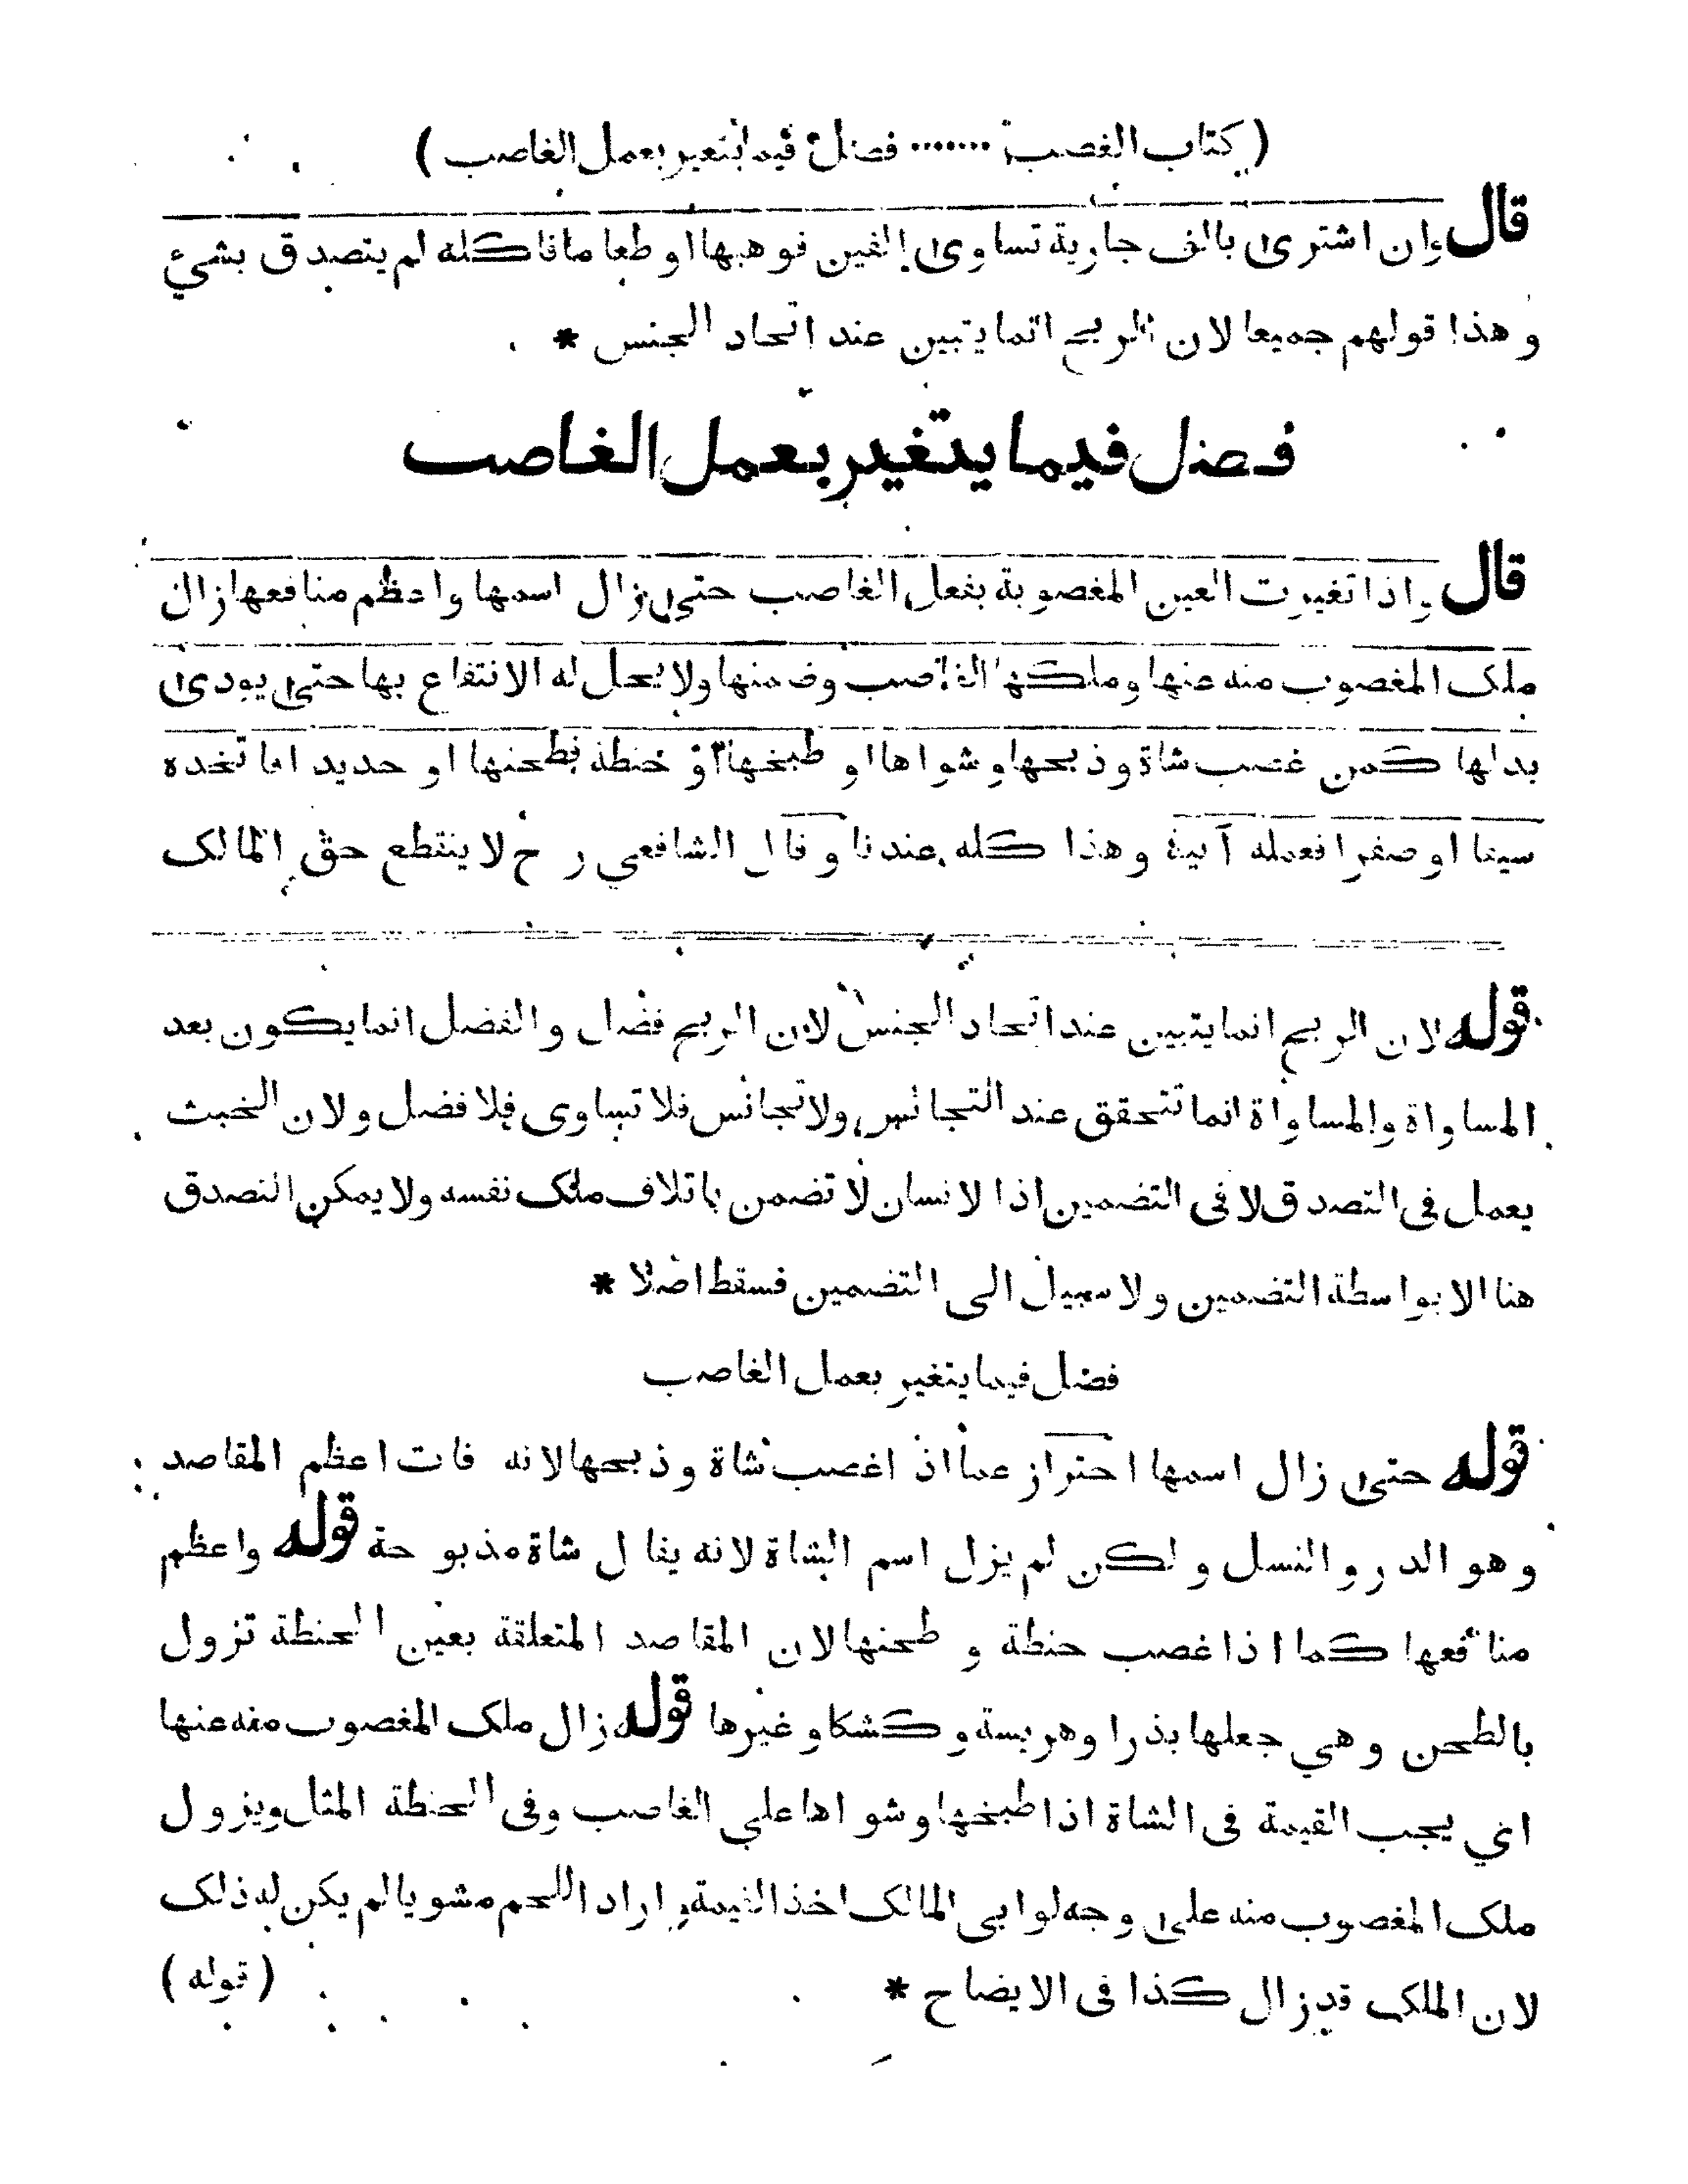 ( كتاب الغصب ······· فصل فيما يتغير بعمل الغاصب )
قال وان اشترى بالف جارية تساوى الفين فوهبها او طعاما فاكله لم يتصدق بشيء
و هذا قولهم جميعا لان الربح انما يتبين عند اتحاد الجنس *
فصل فيما يتغير بعمل الغاصب
قال واذا تغيرت العين المغصوبة بفعل الغاصب حتى زال اسمها واعظم منافعها زال
ملك المغصوب منه عنها وملكها الغاصب وضمنها ولا يحل له الانتفاع بها حتى يودى
بدلها كمن غصب شاة وذبحها وشواها او طبخها او حنطة فطحنها او حديد افاتخذه
سيفا او صفرا فعمله آنية وهذا كله عندنا وقال الشافعي رح لا ينقطع حق المالك
قوله لان الربح انما يتبين عند اتحاد الجنس لان الربح فضل والفضل انما يكون بعد
المساواة والمساواة انما تتحقق عند التجانس ولا تجانس فلا تساوى فلا فضل ولان الخبث
يعمل فى التصدق لا فى التضمين اذا لانسان لا تضمن باتلاف ملك نفسه ولا يمكن التصدق
هنا الا بواسطة التضمين ولا سبيل الى التضمين فسقط اصلا *
فصل فيما يتغير بعمل الغاصب
قوله حتى زال اسمها احتراز عما اذ اغصب شاة وذبحها لانه فات اعظم المقاصد
وهو الدر والنسل ولكن لم يزل اسم الشاة لانه يقال شاة مذبوحة قوله واعظم
منافعها كما اذا غصب حنطة و طحنها لان المقاصد المتعلقة بعين الحنطة تزول
بالطحن وهي جعلها بذرا وهريسة و كشكا وغيرها قوله زال ملك المغصوب منه عنها
اي يجب القيمة فى الشاة اذا طبخها وشواها على الغاصب وفى الحنطة المثل ويزول
ملك المغصوب منه على وجه لوابى المالك اخذ القيمة واراد اللحم مشويا لم يكن له ذلك
لان الملك قد زال كذا فى الايضاح *
( قوله )